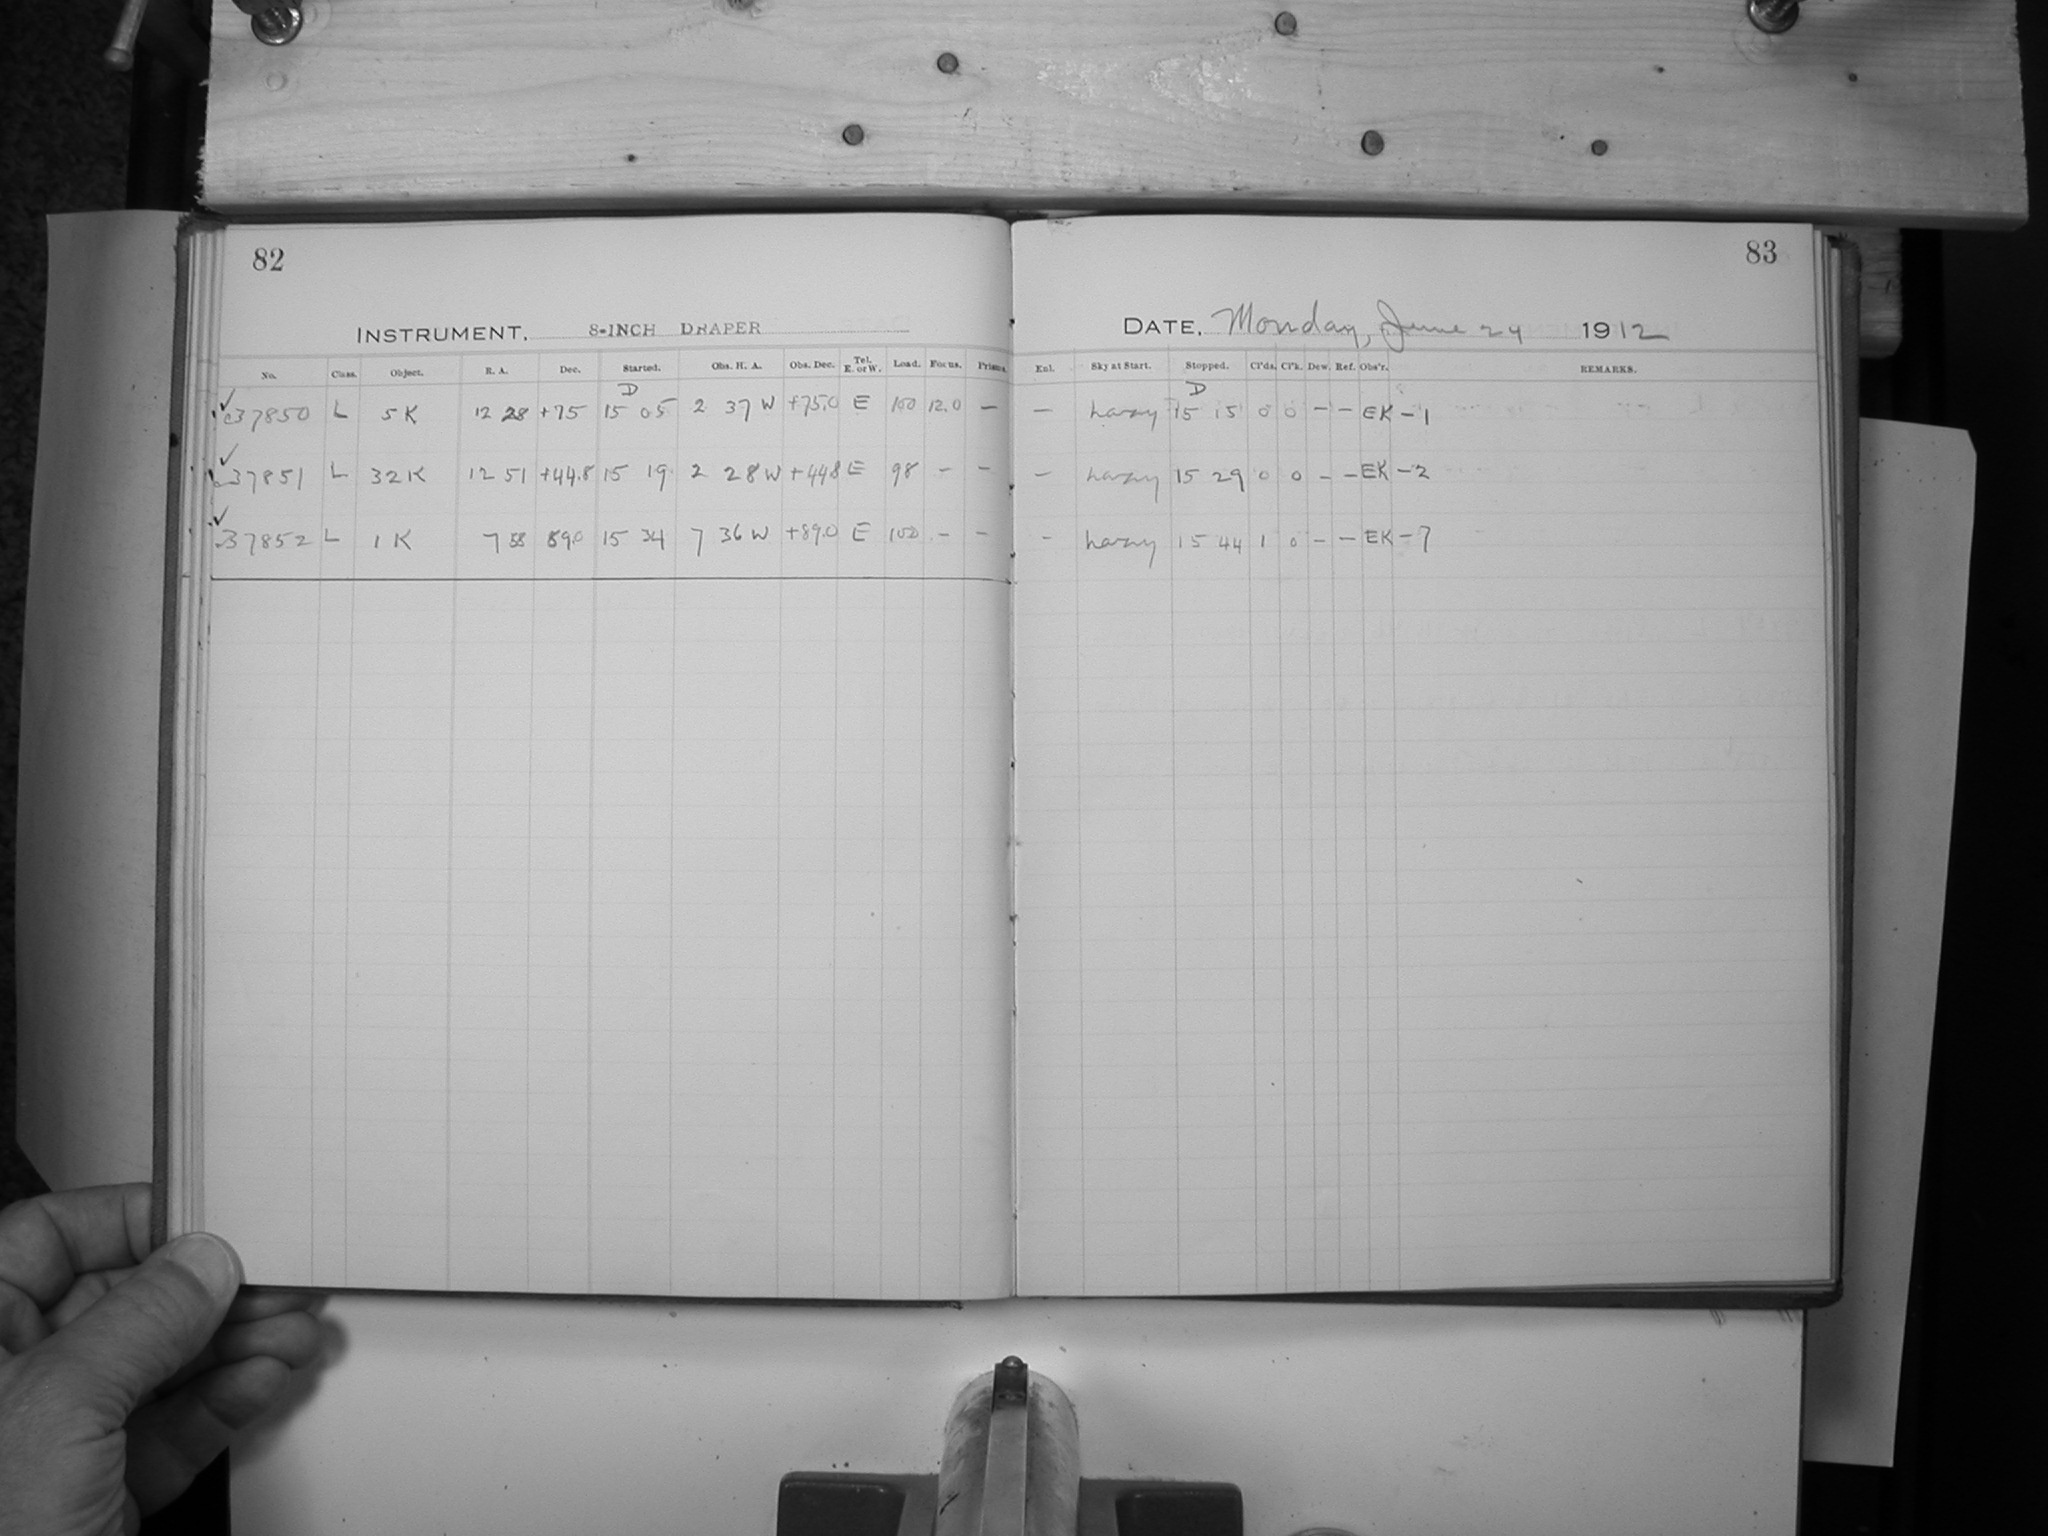 82
INSTRUMENT, 8-INCH DRAPER
No. Class. Object. R. A. Dec. Started. Obs. H. A. Obs. Dec. Tel. E. or W. Load. Focus. Prisms.
D
✓ c37850 L 5K 12 28 +75 15 05 2 37 W +75.0 E 100 12.0 –
✓ c37851 L 32K 12 51 +44.8 15 19 2 28 W +44.8 E 98 – –
✓ c37852 L 1K 7 58 89.0 15 34 7 36 W +89.0 E 100 – –
83
DATE, Monday, June 24 1912
Enl. Sky at Start. Stopped. Cl'ds. Cl'k. Dew. Ref. Obs'r. REMARKS.
D
– hazy 15 15 0 0 – – EK – 1
– hazy 15 29 0 0 – – EK – 2
– hazy 15 44 1 0 – – EK – 7